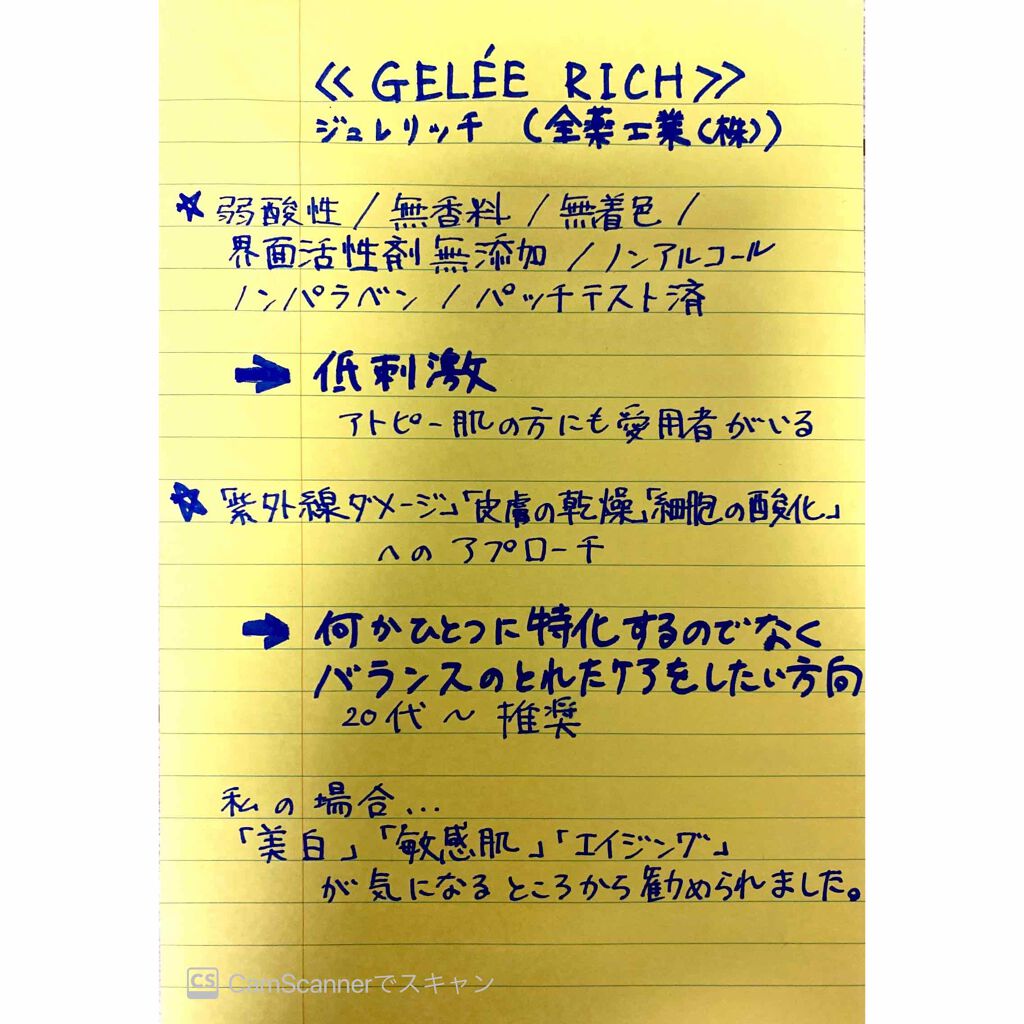 ≪ GELÉE RICH ≫
ジュレリッチ (全薬工業(株))
☆ 弱酸性 / 無香料 / 無着色 /
界面活性剤 無添加 / ノンアルコール
ノンパラベン / パッチテスト済
➡ 低刺激
アトピー肌の方にも愛用者がいる
☆ 「紫外線ダメージ」「皮膚の乾燥」「細胞の酸化」
へのアプローチ
➡ 何かひとつに特化するのでなく
バランスのとれたケアをしたい方向
20代 ～ 推奨
私の場合...
「美白」「敏感肌」「エイジング」
が気になるところから勧められました。
CS CamScannerでスキャン